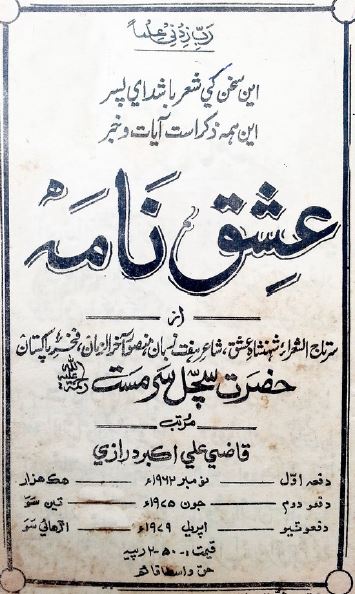 رَبِّ زِدْنِیْ عِلْماً
این سخن کي شعر باشد اي پسر
این همه ذکر است آیات و خبر
عِشق نَامَہ
از
سرتاج الشعراء، شہنشاہِ عشق، شاعر ہفت زبان، منصور آخر الزمان، فخر پاکستان
حضرت سچّل سرمست رحمۃ اللہ علیہ
مُرتب
قاضي علي اکبر درازي
دفعہ اوّل — نومبر ۱۹۶۲ء — ھک ھزار
دفعو دوم — جون ۱۹۷۵ء — تین سَو
دفعو ٽیو — اپریل ۱۹۷۹ء — اڙھائي سَو
قیمت: ۵۰-۲ روپیہ